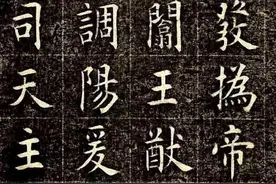 發撝帝
闡王猷
調陽爰
司天主